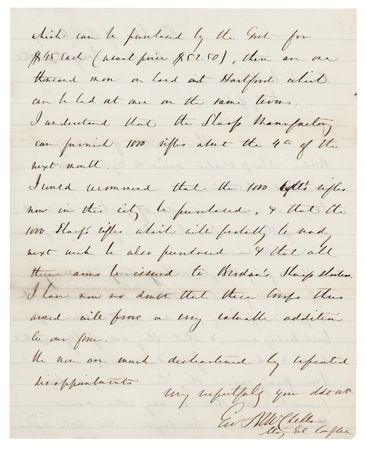 which can be purchased by the Govt for
$45 each (usual price $52.50), there are one
thousand more on hand at Hartford which
can be had at once on the same terms.
I understand that the Sharps Manufactory
can furnish 1000 rifles about the 4th of the
next month.
I would recommend that the 1000 rifles
now in this city be purchased, & that the
1000 Sharp's rifles which will probably be ready
next week be also purchased — & that all
these arms be issued to Berdan's Sharp shooters.
I have now no doubt that these Corps thus
armed will prove a very valuable addition
to our force.
The men are much disheartened by repeated
disappointments.
Very respectfully your obdt svt
Geo B McClellan
Maj Genl Comdg